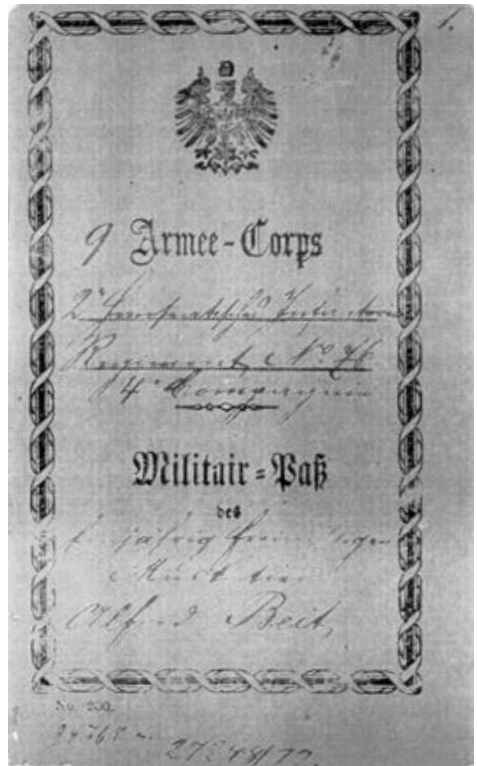 1.
9 Armee-Corps
2s Hanseatisches Infanterie
Regiment No. 76.
4e Compagnie
Militair-Paß
des
Einjährig Freiwilligen
Musketier
Alfred Beit,
No. 200.